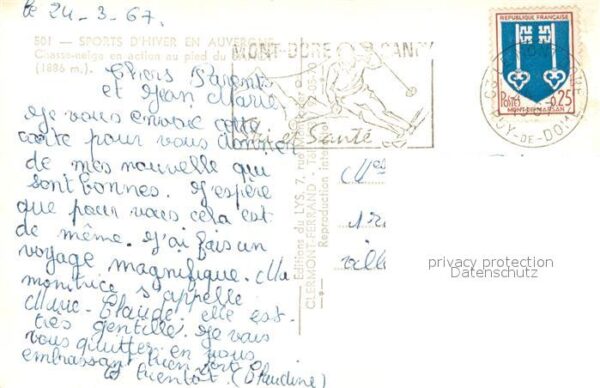 le 24-3-67.
501 — SPORTS D'HIVER EN AUVERGNE
Chasse-neige en action au pied du
(1886 m.)
MONT-DORE SANCY
Ski et Santé
REPUBLIQUE FRANÇAISE
Postes 0,25
MONT-DE-MARSAN
PUY-DE-DOME
Chers Parents
et Jean Marie
Je vous envoie cette
carte pour vous donner
de mes nouvelle qui
sont bonnes. J'espère
que pour vous cela est
de même. J'ai fais un
voyage magnifique. Ma
monitrice s'appelle
Marie-Claude. elle est
très gentille. Je vais
vous quitter en vous
embrassant bien fort
à bientôt. (Claudine)
Editions du LYS, 7, rue
CLERMONT-FERRAND - Tél.
Reproduction
privacy protection
Datenschutz